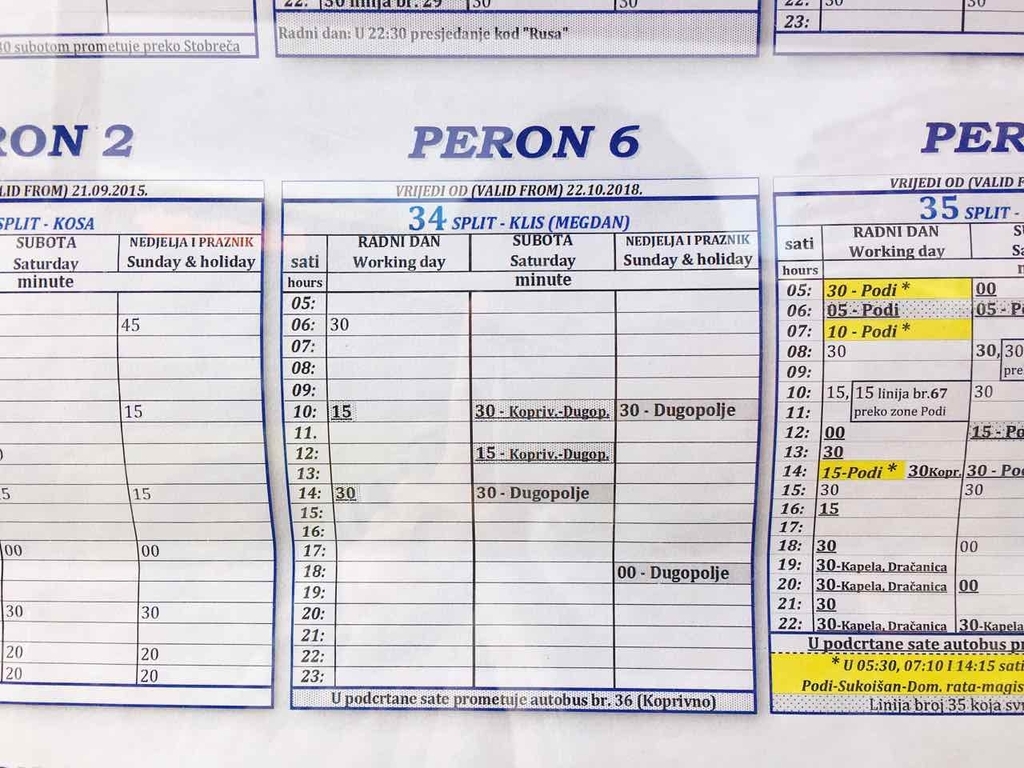 22: 30 linija br. 29 30 30
22: 30 30
23:
30 subotom prometuje preko Stobreča
Radni dan: U 22:30 presjedanje kod "Rusa"
RON 2
LID FROM) 21.09.2015.
SPLIT - KOSA
SUBOTA NEDJELJA I PRAZNIK
Saturday Sunday & holiday
minute
45
15
5 15
00 00
30 30
20 20
20 20
PERON 6
VRIJEDI OD (VALID FROM) 22.10.2018.
34 SPLIT - KLIS (MEGDAN)
RADNI DAN SUBOTA NEDJELJA I PRAZNIK
sati Working day Saturday Sunday & holiday
hours minute
05:
06: 30
07:
08:
09:
10: 15 30 - Kopriv.-Dugop. 30 - Dugopolje
11.
12: 15 - Kopriv.-Dugop.
13:
14: 30 30 - Dugopolje
15:
16:
17:
18: 00 - Dugopolje
19:
20:
21:
22:
23:
U podcrtane sate prometuje autobus br. 36 (Koprivno)
PER
VRIJEDI OD (VALID F
35 SPLIT -
RADNI DAN
sati Working day
hours
05: 30 - Podi * 00
06: 05 - Podi 05 - P
07: 10 - Podi *
08: 30 30, 30
09: pre
10: 15, 15 linija br.67 30
11: preko zone Podi
12: 00 15 - Po
13: 30
14: 15-Podi * 30Kopr. 30 - Pod
15: 30 30
16: 15
17:
18: 30 00
19: 30-Kapela, Dračanica
20: 30-Kapela, Dračanica 00
21: 30
22: 30-Kapela, Dračanica 30-Kapela
U podcrtane sate autobus pr
* U 05:30, 07:10 I 14:15 sati
Podi-Sukoišan-Dom. rata-magis
Linija broj 35 koja svr